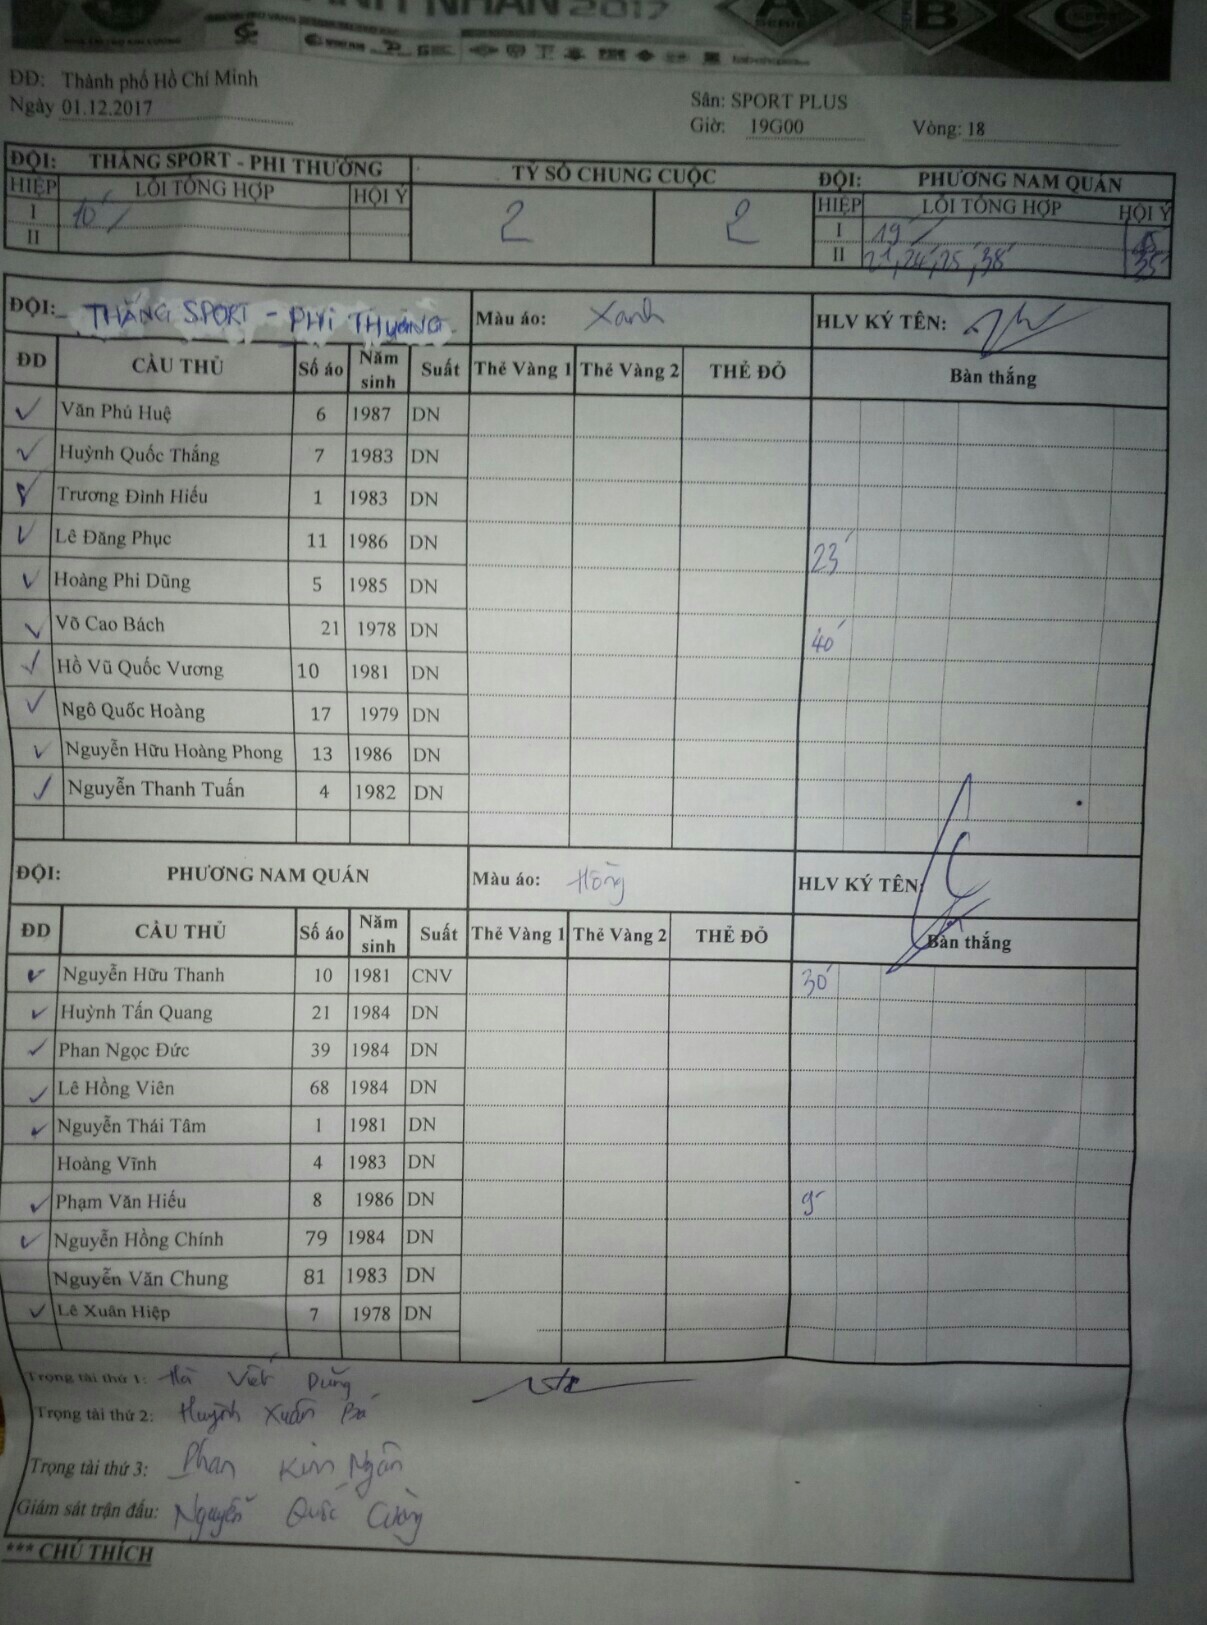 NHÂN 2017
A B C
ĐĐ: Thành phố Hồ Chí Minh
Ngày 01.12.2017
Sân: SPORT PLUS
Giờ: 19G00 Vòng: 18
ĐỘI: THẮNG SPORT - PHI THƯỜNG TỶ SỐ CHUNG CUỘC ĐỘI: PHƯƠNG NAM QUÁN
HIỆP LỖI TỔNG HỢP HỘI Ý 2 2 HIỆP LỖI TỔNG HỢP HỘI Ý
I 10' I 19'
II II 21', 24', 25', 38' 35'
ĐỘI: THẮNG SPORT - PHI THƯỜNG Màu áo: Xanh HLV KÝ TÊN:
ĐD CẦU THỦ Số áo Năm sinh Suất Thẻ Vàng 1 Thẻ Vàng 2 THẺ ĐỎ Bàn thắng
Văn Phú Huệ 6 1987 DN
Huỳnh Quốc Thắng 7 1983 DN
Trương Đình Hiếu 1 1983 DN
Lê Đăng Phục 11 1986 DN 23'
Hoàng Phi Dũng 5 1985 DN
Võ Cao Bách 21 1978 DN 40'
Hồ Vũ Quốc Vương 10 1981 DN
Ngô Quốc Hoàng 17 1979 DN
Nguyễn Hữu Hoàng Phong 13 1986 DN
Nguyễn Thanh Tuấn 4 1982 DN
ĐỘI: PHƯƠNG NAM QUÁN Màu áo: Hồng HLV KÝ TÊN:
ĐD CẦU THỦ Số áo Năm sinh Suất Thẻ Vàng 1 Thẻ Vàng 2 THẺ ĐỎ Bàn thắng
Nguyễn Hữu Thanh 10 1981 CNV 30'
Huỳnh Tấn Quang 21 1984 DN
Phan Ngọc Đức 39 1984 DN
Lê Hồng Viên 68 1984 DN
Nguyễn Thái Tâm 1 1981 DN
Hoàng Vĩnh 4 1983 DN
Phạm Văn Hiếu 8 1986 DN 9'
Nguyễn Hồng Chính 79 1984 DN
Nguyễn Văn Chung 81 1983 DN
Lê Xuân Hiệp 7 1978 DN
Trọng tài thứ 1: Hà Viết Dũng
Trọng tài thứ 2: Huỳnh Xuân Bá
Trọng tài thứ 3: Phan Kim Ngân
Giám sát trận đấu: Nguyễn Quốc Cường
*** CHÚ THÍCH